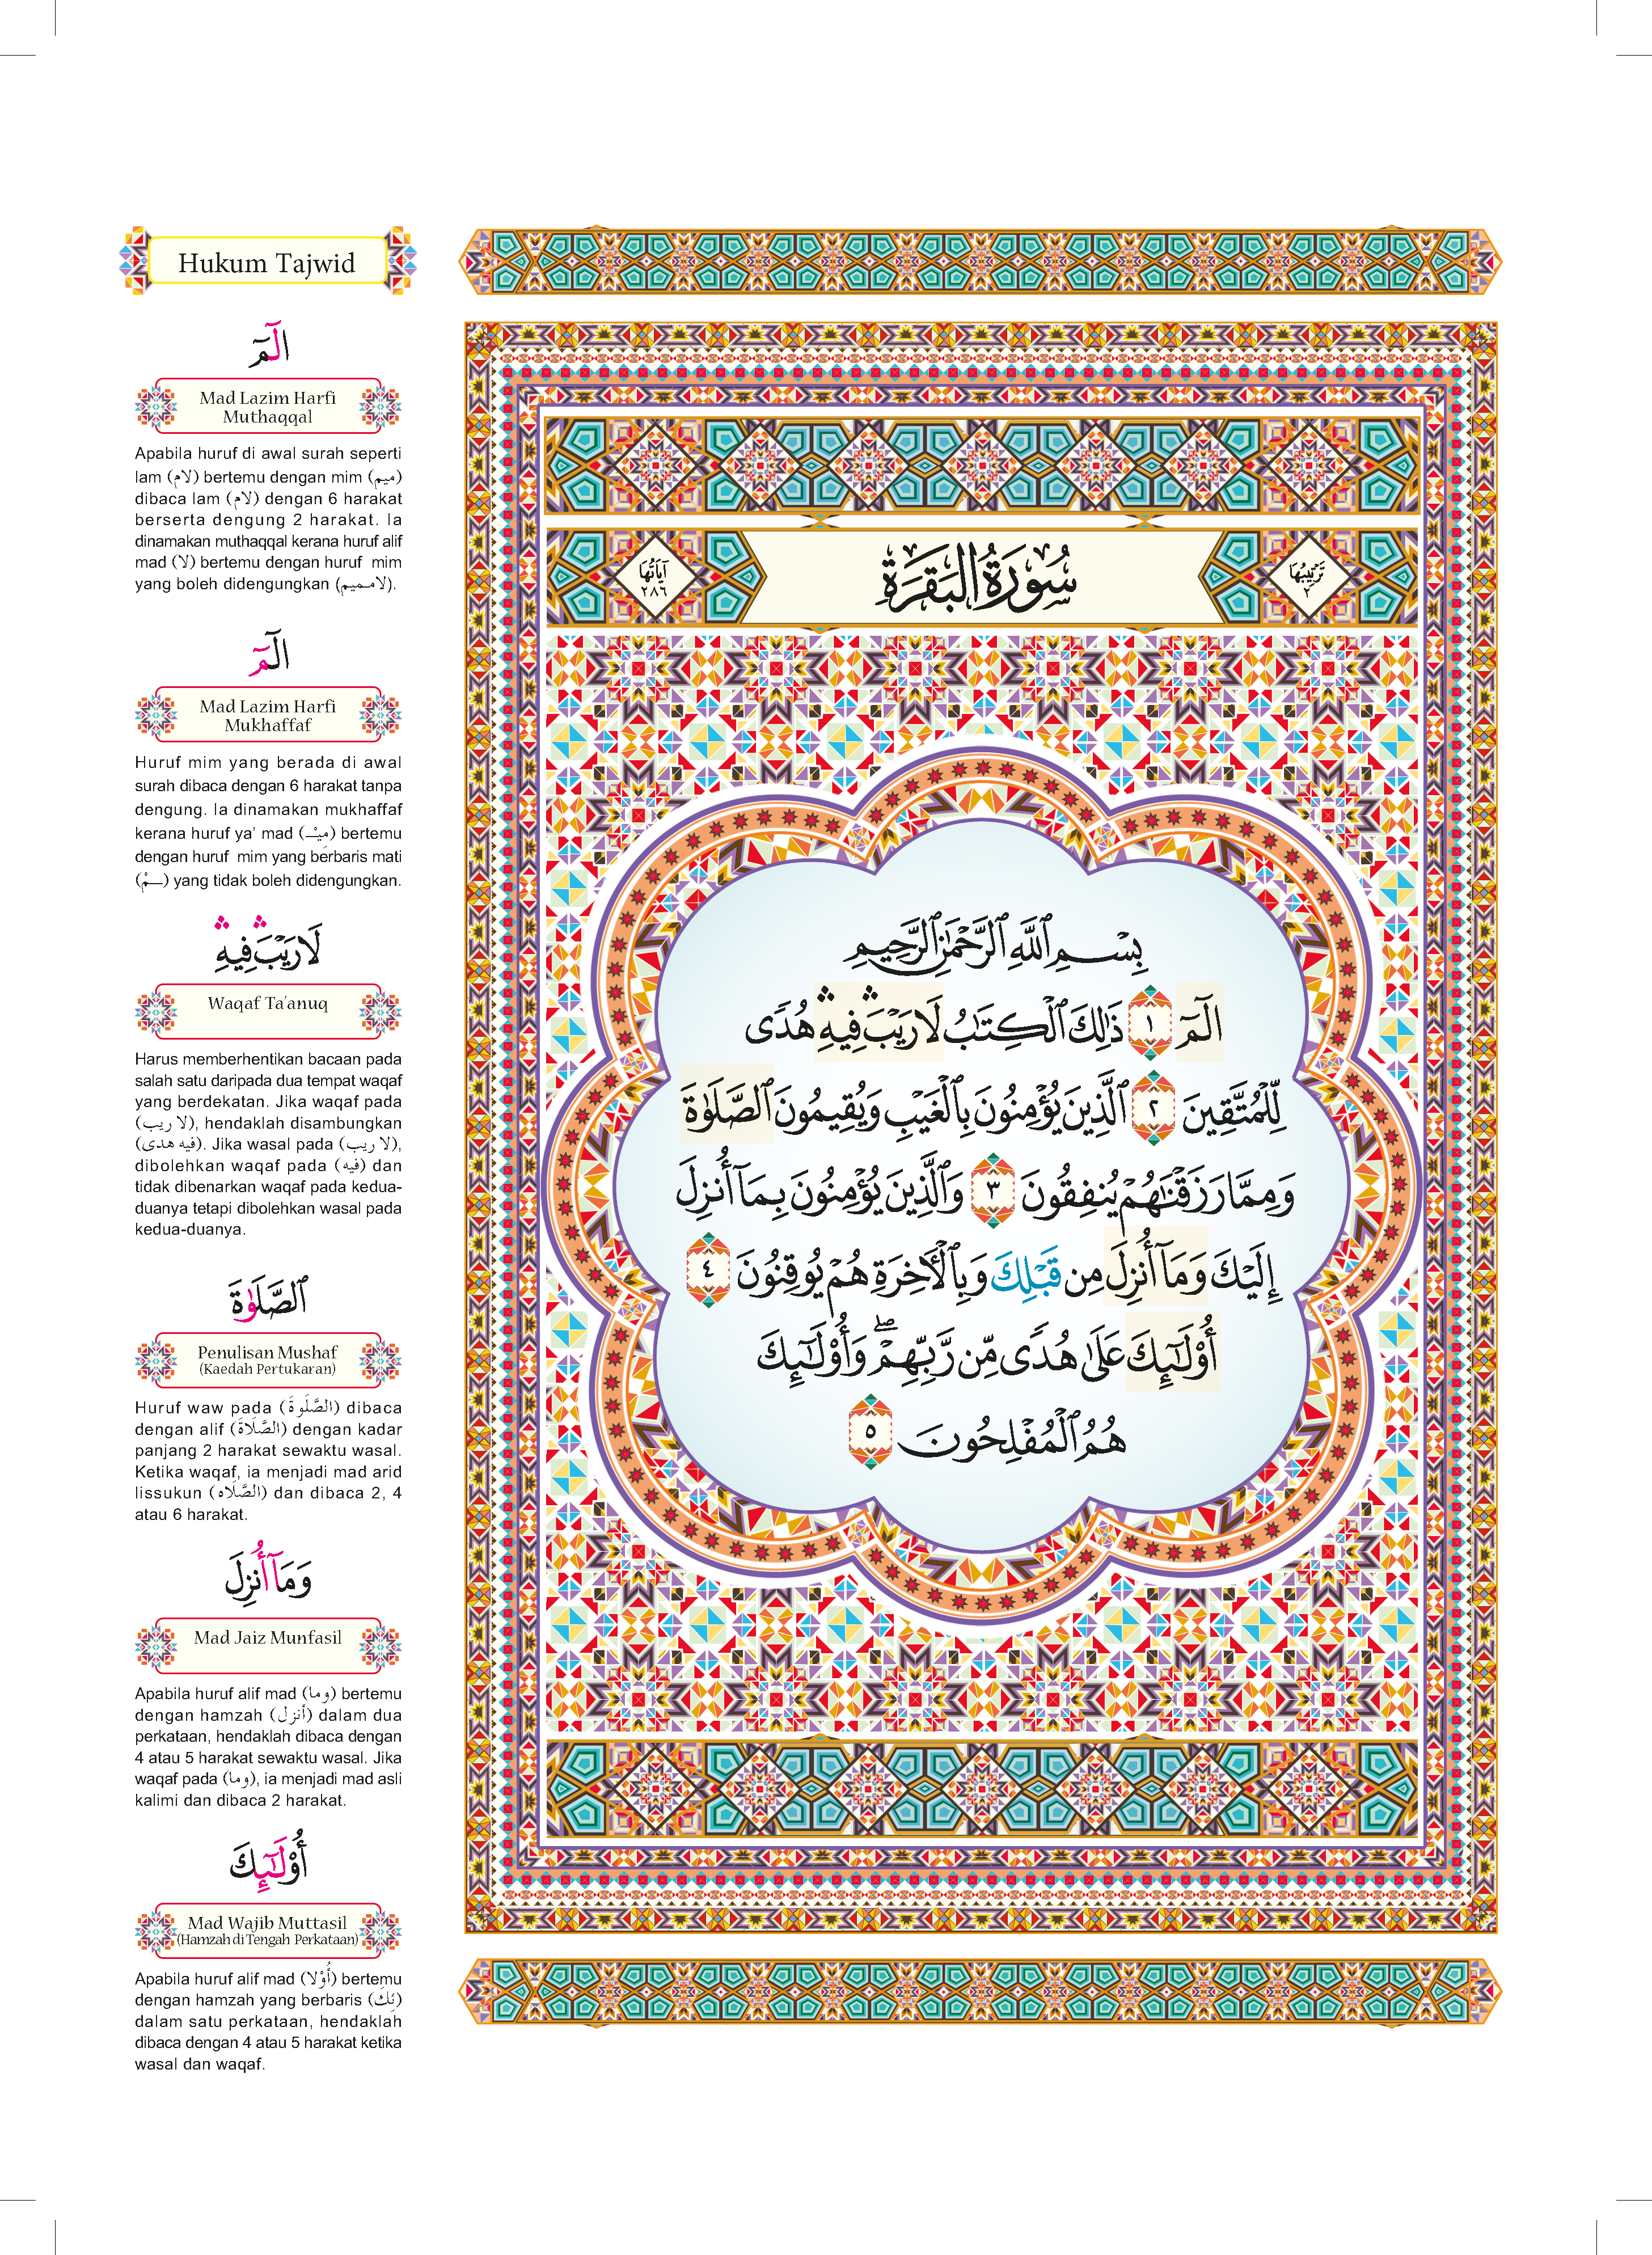 Hukum Tajwid
الٓمٓ
Mad Lazim Harfi
Muthaqqal
Apabila huruf di awal surah seperti
lam (لام) bertemu dengan mim (ميم)
dibaca lam (لام) dengan 6 harakat
berserta dengung 2 harakat. Ia
dinamakan muthaqqal kerana huruf alif
mad (لا) bertemu dengan huruf mim
yang boleh didengungkan (لامميم).
الٓمٓ
Mad Lazim Harfi
Mukhaffaf
Huruf mim yang berada di awal
surah dibaca dengan 6 harakat tanpa
dengung. Ia dinamakan mukhaffaf
kerana huruf ya’ mad (مِيْـ) bertemu
dengan huruf mim yang berbaris mati
(ـمْ) yang tidak boleh didengungkan.
لَا رَيْبَ ۛ فِيهِ ۛ
Waqaf Ta'anuq
Harus memberhentikan bacaan pada
salah satu daripada dua tempat waqaf
yang berdekatan. Jika waqaf pada
(لا ريب), hendaklah disambungkan
(فيه هدى). Jika wasal pada (لا ريب),
dibolehkan waqaf pada (فيه) dan
tidak dibenarkan waqaf pada kedua-
duanya tetapi dibolehkan wasal pada
kedua-duanya.
ٱلصَّلَوٰةَ
Penulisan Mushaf
(Kaedah Pertukaran)
Huruf waw pada (الصَّلَوةَ) dibaca
dengan alif (الصَّلَاةَ) dengan kadar
panjang 2 harakat sewaktu wasal.
Ketika waqaf, ia menjadi mad arid
lissukun (الصَّلَاه) dan dibaca 2, 4
atau 6 harakat.
وَمَآ أُنزِلَ
Mad Jaiz Munfasil
Apabila huruf alif mad (وما) bertemu
dengan hamzah (أنزل) dalam dua
perkataan, hendaklah dibaca dengan
4 atau 5 harakat sewaktu wasal. Jika
waqaf pada (وما), ia menjadi mad asli
kalimi dan dibaca 2 harakat.
أُوْلَٰٓئِكَ
Mad Wajib Muttasil
(Hamzah di Tengah Perkataan)
Apabila huruf alif mad (أُوْلَا) bertemu
dengan hamzah yang berbaris (ئِكَ)
dalam satu perkataan, hendaklah
dibaca dengan 4 atau 5 harakat ketika
wasal dan waqaf.
تَرْتِيبُهَا
٢
سُورَةُ البَقَرَةِ
آيَاتُهَا
٢٨٦
بِسْمِ ٱللَّهِ ٱلرَّحْمَٰنِ ٱلرَّحِيمِ
الٓمٓ ١ ذَٰلِكَ ٱلْكِتَٰبُ لَا رَيْبَ ۛ فِيهِ ۛ هُدًى
لِّلْمُتَّقِينَ ٢ ٱلَّذِينَ يُؤْمِنُونَ بِٱلْغَيْبِ وَيُقِيمُونَ ٱلصَّلَوٰةَ
وَمِمَّا رَزَقْنَٰهُمْ يُنفِقُونَ ٣ وَٱلَّذِينَ يُؤْمِنُونَ بِمَآ أُنزِلَ
إِلَيْكَ وَمَآ أُنزِلَ مِن قَبْلِكَ وَبِٱلْأَخِرَةِ هُمْ يُوقِنُونَ ٤
أُوْلَٰٓئِكَ عَلَىٰ هُدًى مِّن رَّبِّهِمْ ۖ وَأُوْلَٰٓئِكَ
هُمُ ٱلْمُفْلِحُونَ ٥